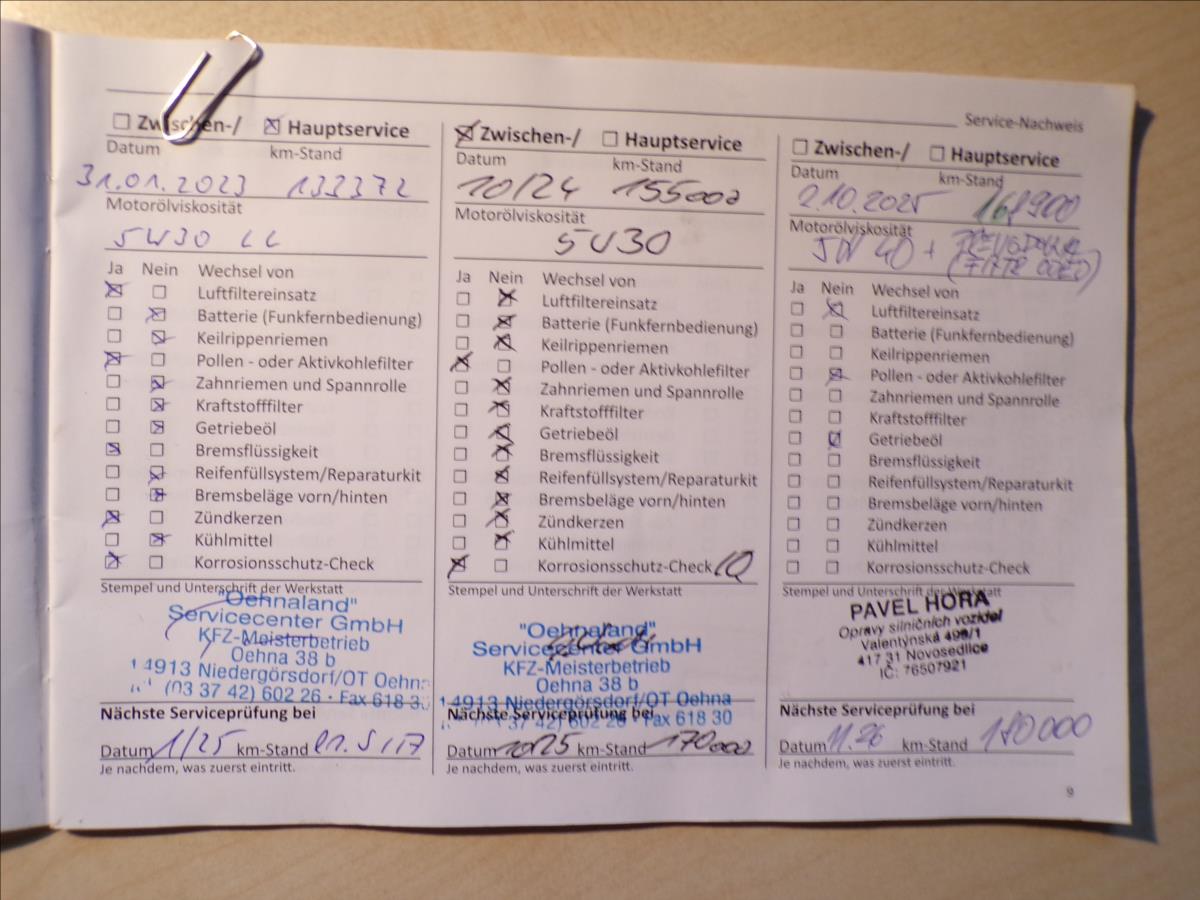 Service-Nachweis
☐ Zwischen-/ ☒ Hauptservice
Datum km-Stand
31.01.2023 133372
Motorölviskosität
5W30 LL
Ja Nein Wechsel von
☒ ☐ Luftfiltereinsatz
☐ ☒ Batterie (Funkfernbedienung)
☐ ☒ Keilrippenriemen
☒ ☐ Pollen - oder Aktivkohlefilter
☐ ☒ Zahnriemen und Spannrolle
☐ ☒ Kraftstofffilter
☐ ☒ Getriebeöl
☒ ☐ Bremsflüssigkeit
☐ ☒ Reifenfüllsystem/Reparaturkit
☐ ☒ Bremsbeläge vorn/hinten
☒ ☐ Zündkerzen
☐ ☒ Kühlmittel
☒ ☐ Korrosionsschutz-Check
Stempel und Unterschrift der Werkstatt
"Oehnaland"
Servicecenter GmbH
KFZ-Meisterbetrieb
Oehna 38 b
14913 Niedergörsdorf/OT Oehna
(03 37 42) 602 26 · Fax 618 3
Nächste Serviceprüfung bei
Datum 1/25 km-Stand
Je nachdem, was zuerst eintritt.
☒ Zwischen-/ ☐ Hauptservice
Datum km-Stand
10/24 155000
Motorölviskosität
5W30
Ja Nein Wechsel von
☐ ☒ Luftfiltereinsatz
☐ ☒ Batterie (Funkfernbedienung)
☐ ☒ Keilrippenriemen
☒ ☐ Pollen - oder Aktivkohlefilter
☐ ☒ Zahnriemen und Spannrolle
☐ ☒ Kraftstofffilter
☐ ☒ Getriebeöl
☐ ☒ Bremsflüssigkeit
☐ ☒ Reifenfüllsystem/Reparaturkit
☐ ☒ Bremsbeläge vorn/hinten
☐ ☒ Zündkerzen
☐ ☒ Kühlmittel
☒ ☐ Korrosionsschutz-Check
Stempel und Unterschrift der Werkstatt
"Oehnaland"
Servicecenter GmbH
KFZ-Meisterbetrieb
Oehna 38 b
14913 Niedergörsdorf/OT Oehna
37 42) 602 26 · Fax 618 30
Nächste Serviceprüfung bei
Datum 10/25 km-Stand 170000
Je nachdem, was zuerst eintritt.
☐ Zwischen-/ ☐ Hauptservice
Datum km-Stand
2.10.2025
Motorölviskosität
5W 40 +
Ja Nein Wechsel von
☐ ☒ Luftfiltereinsatz
☐ ☐ Batterie (Funkfernbedienung)
☐ ☐ Keilrippenriemen
☐ ☒ Pollen - oder Aktivkohlefilter
☐ ☐ Zahnriemen und Spannrolle
☐ ☐ Kraftstofffilter
☐ ☒ Getriebeöl
☐ ☐ Bremsflüssigkeit
☐ ☐ Reifenfüllsystem/Reparaturkit
☐ ☐ Bremsbeläge vorn/hinten
☐ ☐ Zündkerzen
☐ ☐ Kühlmittel
☐ ☐ Korrosionsschutz-Check
Stempel und Unterschrift der Werkstatt
PAVEL HORA
Opravy silničních vozidel
Valentýnská 499/1
417 31 Novosedlice
IČ: 76507921
Nächste Serviceprüfung bei
Datum 11.26 km-Stand 180000
Je nachdem, was zuerst eintritt.
9